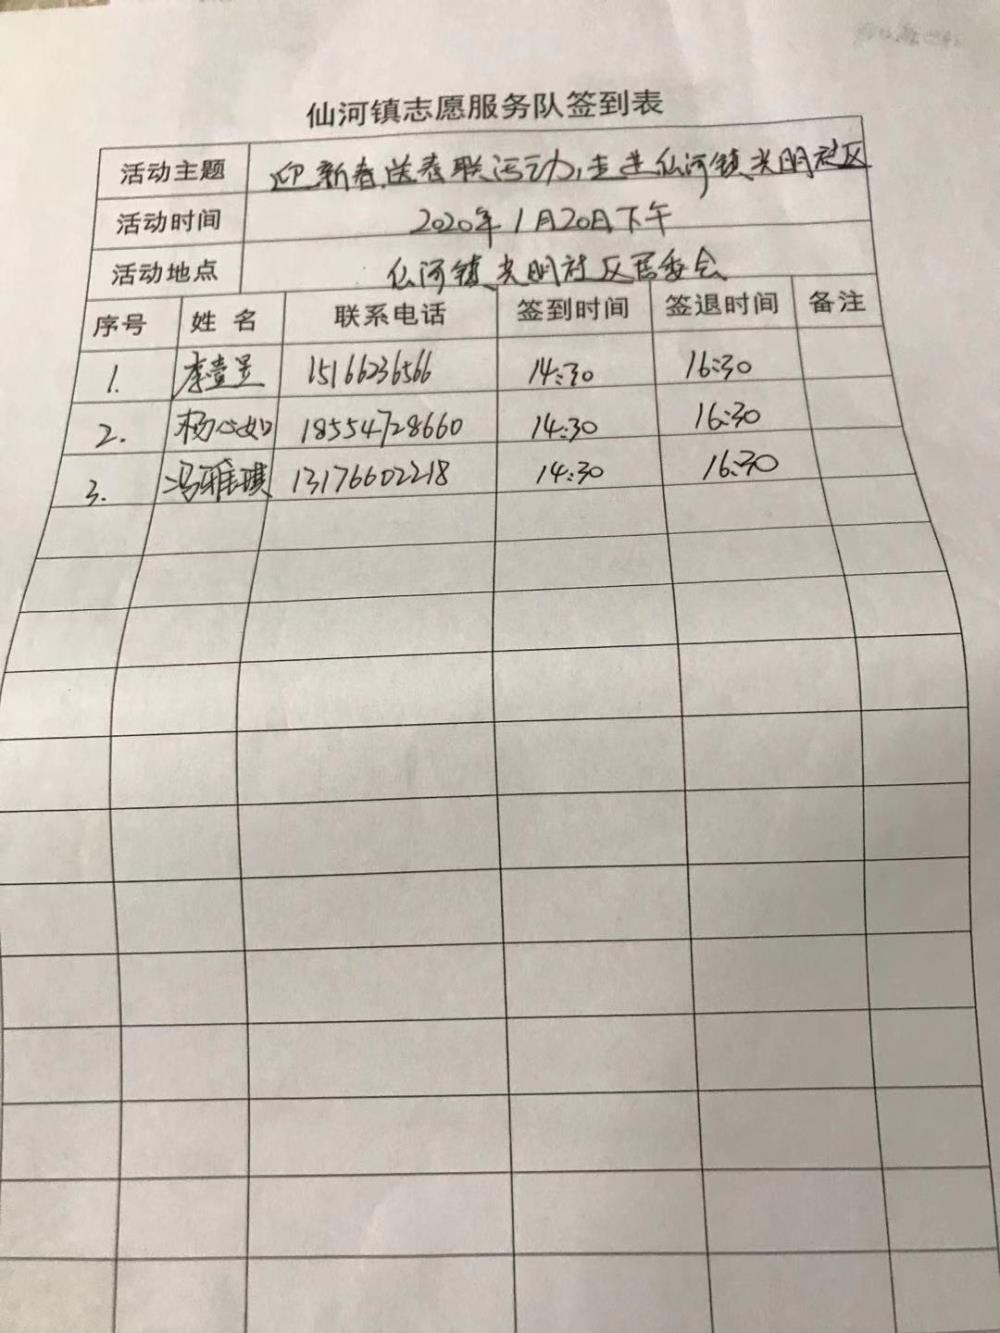 仙河镇志愿服务队签到表
活动主题 迎新春,送春联活动,走进仙河镇光明社区
活动时间 2020年1月20日下午
活动地点 仙河镇光明社区居委会
序号 姓名 联系电话 签到时间 签退时间 备注
1. 李壹昱 15166236566 14:30 16:30
2. 杨心如 18554728660 14:30 16:30
3. 冯雅琪 13176602218 14:30 16:30